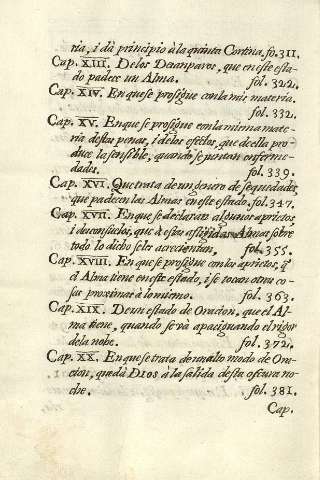 ria, i dà principio à la quinta Cortina. fo. 311.
Cap. XIII. De los Desamparos, que en este esta-
do padece un Alma. fol. 322.
Cap. XIV. En que se prosigue con la mis materia.
fol. 332.
Cap. XV. En que se prosigue con la misma mate-
ria destas penas, i de los efetos, que de ella pro-
duce la sensible, quando se juntan enferme-
dades. fol. 339.
Cap. XVI. Que trata de un genero de sequedades
que padecen las Almas en este estado. fol. 347.
Cap. XVII. En que se declaran algunos aprietos
i desconsuelos, que à estas afligidas Almas sobre
todo lo dicho se les acrecientan. fol. 355.
Cap. XVIII. En que se prosigue con los aprietos, q̃
el Alma tiene en este estado, i se tocan otras co-
sas proximas à lo mismo. fol. 363.
Cap. XIX. De un estado de Oracion, que el Al-
ma tiene, quando se và apaciguando el rigor
de la noche. fol. 372.
Cap. XX. En que se trata de un alto modo de Ora-
cion, que dà DIOS à la salida desta oscura no-
che. fol. 381.
Cap.